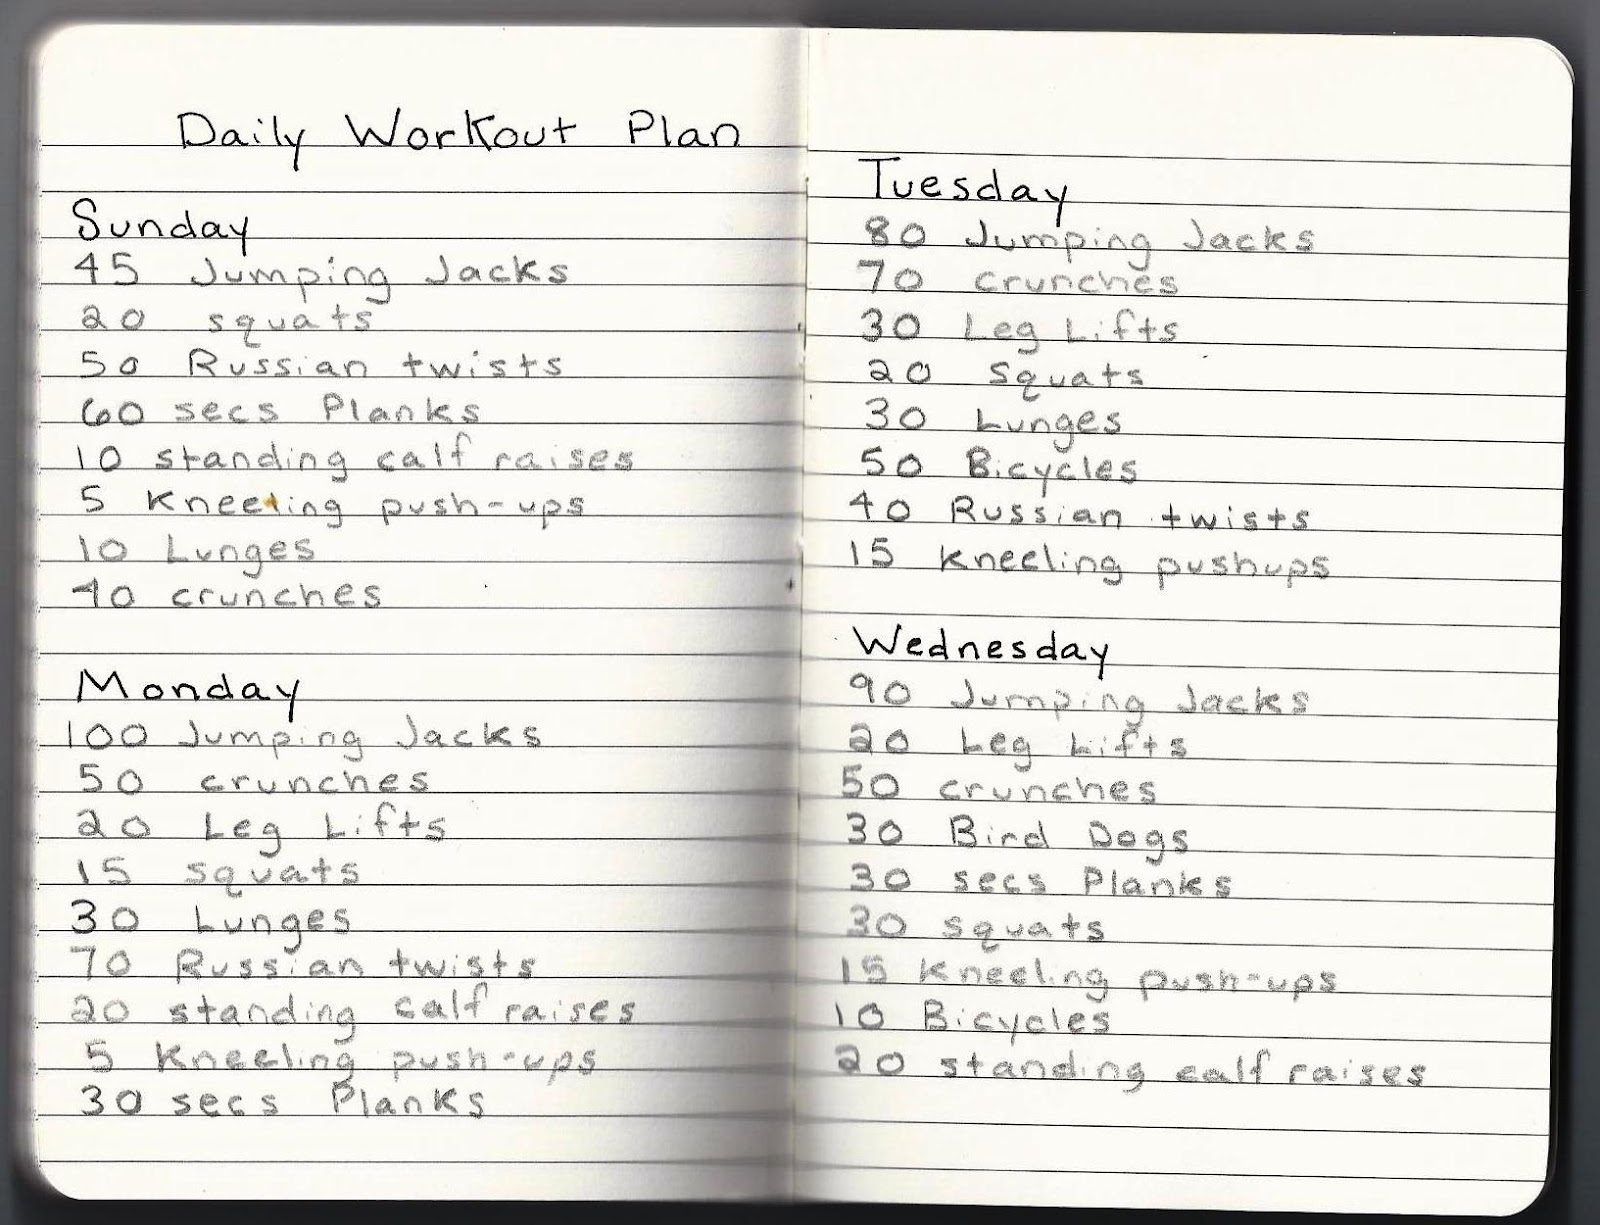 Daily Workout Plan
Sunday
45 Jumping Jacks
20 squats
50 Russian twists
60 secs Planks
10 standing calf raises
5 Kneeling push-ups
10 Lunges
40 crunches
Monday
100 Jumping Jacks
50 crunches
20 Leg Lifts
15 squats
30 Lunges
70 Russian twists
20 standing calf raises
5 Kneeling push-ups
30 secs Planks
Tuesday
80 Jumping Jacks
70 crunches
30 Leg Lifts
20 squats
30 Lunges
50 Bicycles
40 Russian twists
15 kneeling pushups
Wednesday
90 Jumping Jacks
20 Leg Lifts
50 crunches
30 Bird Dogs
30 secs Planks
30 squats
15 Kneeling push-ups
10 Bicycles
20 standing calf raises